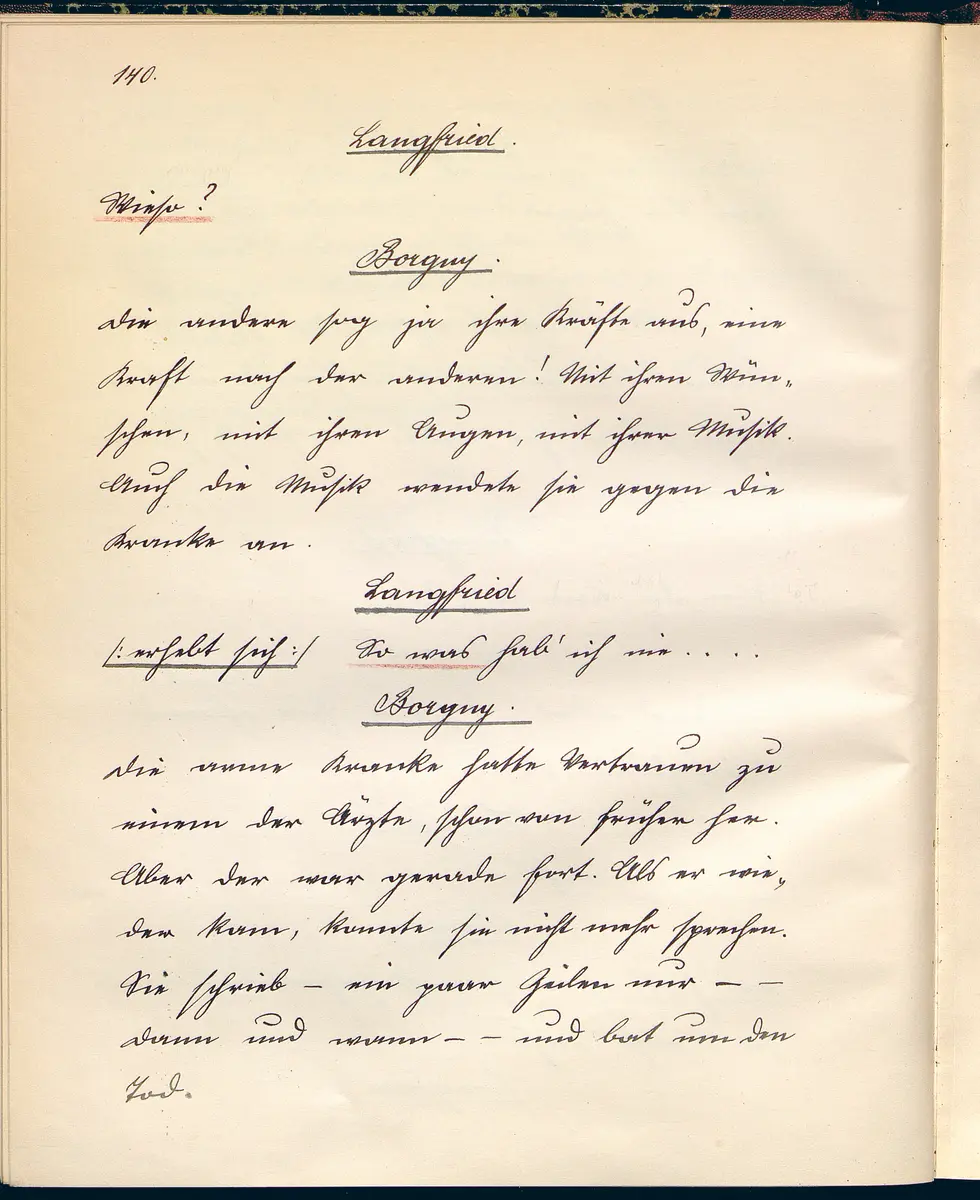 140.
Langfried.
Wieso?
Borgny.
Die andere sog ja ihre Kräfte aus, eine
Kraft nach der anderen! Mit ihren Wün-
schen, mit ihren Augen, mit ihrer Musik.
Auch die Musik wendete sie gegen die
Kranke an.
Langfried
/: erhebt sich :/ So was hab' ich nie....
Borgny.
Die arme Kranke hatte Vertrauen zu
einem der Ärzte, schon von früher her.
Aber der war gerade fort. Als er wie-
der kam, konnte sie nicht mehr sprechen.
Sie schrieb – ein paar Zeilen nur – –
dann und wann – – und bat um den
Tod.